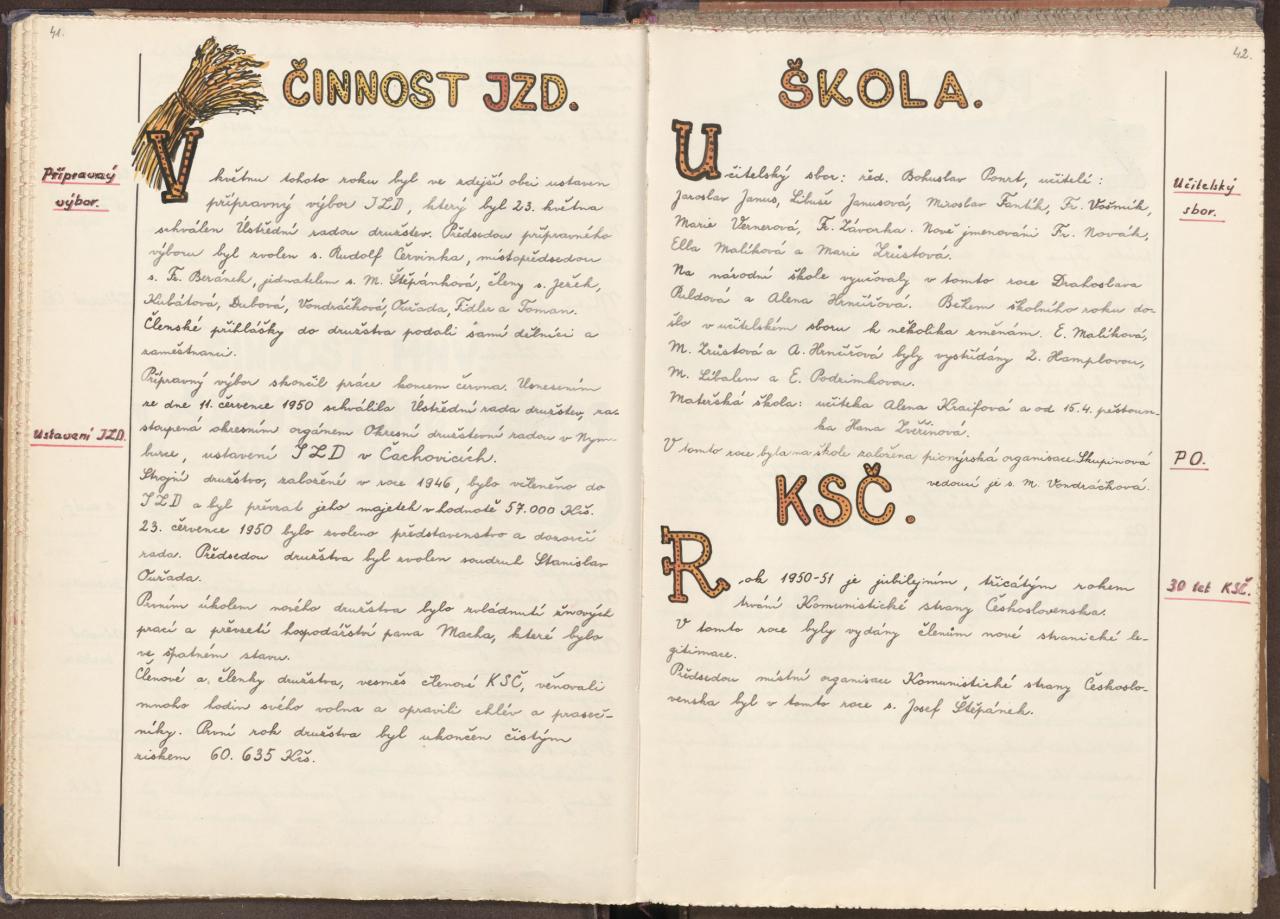 41.
ČINNOST JZD.
Přípravný
výbor.
V květnu tohoto roku byl ve zdejší obci ustaven
přípravný výbor JZD, který byl 23. května
schválen Ústřední radou družstev. Předsedou přípravného
výboru byl zvolen s. Rudolf Červinka, místopředsedou
s. Fr. Beránek, jednatelem s. M. Štěpánková, členy s. Jeřeh,
Kubátová, Dubová, Vondráčková, Ouřada, Fidler a Toman.
Členské přihlášky do družstva podali samí dělníci a
zaměstnanci.
Přípravný výbor skončil práce koncem června. Usnesením
ze dne 11. července 1950 schválila Ústřední rada družstev, za-
stoupená okresním orgánem Okresní družstevní radou v Nym-
burce, ustavení JZD v Čachovicích.
Ustavení JZD.
Strojní družstvo, založené v roce 1946, bylo včleněno do
JZD a byl převzat jeho majetek v hodnotě 57.000 Kčs.
23. července 1950 bylo zvoleno představenstvo a dozorčí
rada. Předsedou družstva byl zvolen soudruh Stanislav
Ouřada.
Prvním úkolem nového družstva bylo zvládnutí žňových
prací a převzetí hospodářství pana Macha, které bylo
ve špatném stavu.
Členové a členky družstva, vesměs členové KSČ, věnovali
mnoho hodin svého volna a opravili chlév a praseč-
níky. První rok družstva byl ukončen čistým
ziskem 60.635 Kčs.
42.
ŠKOLA.
Učitelský sbor: řed. Bohuslav Ponrt, učitelé:
Jaroslav Janus, Libuše Janusová, Miroslav Fantík, Fr. Vošmik,
Marie Vernerová, Fr. Závorka. Nově jmenováni Fr. Novák,
Ella Malíková a Marie Zrůstová.
Učitelský
sbor.
Na národní škole vyučovaly v tomto roce Drahoslava
Puldová a Alena Hrnčířová. Během školního roku do-
šlo v učitelském sboru k několika změnám. E. Malíková,
M. Zrůstová a A. Hrnčířová byly vystřídány Z. Hamplovou,
M. Líbalem a E. Podzimkovou.
Mateřská škola: učitelka Alena Kraifová a od 15.4. pěstoun-
ka Hana Zvěřinová.
V tomto roce byla na škole založena pionýrská organisace. Skupinová
vedoucí je s. M. Vondráčková.
PO.
KSČ.
Rok 1950-51 je jubilejním, třicátým rokem
trvání Komunistické strany Československa.
30 let KSČ.
V tomto roce byly vydány členům nové stranické le-
gitimace.
Předsedou místní organisace Komunistické strany Českoslo-
venska byl v tomto roce s. Josef Štěpánek.